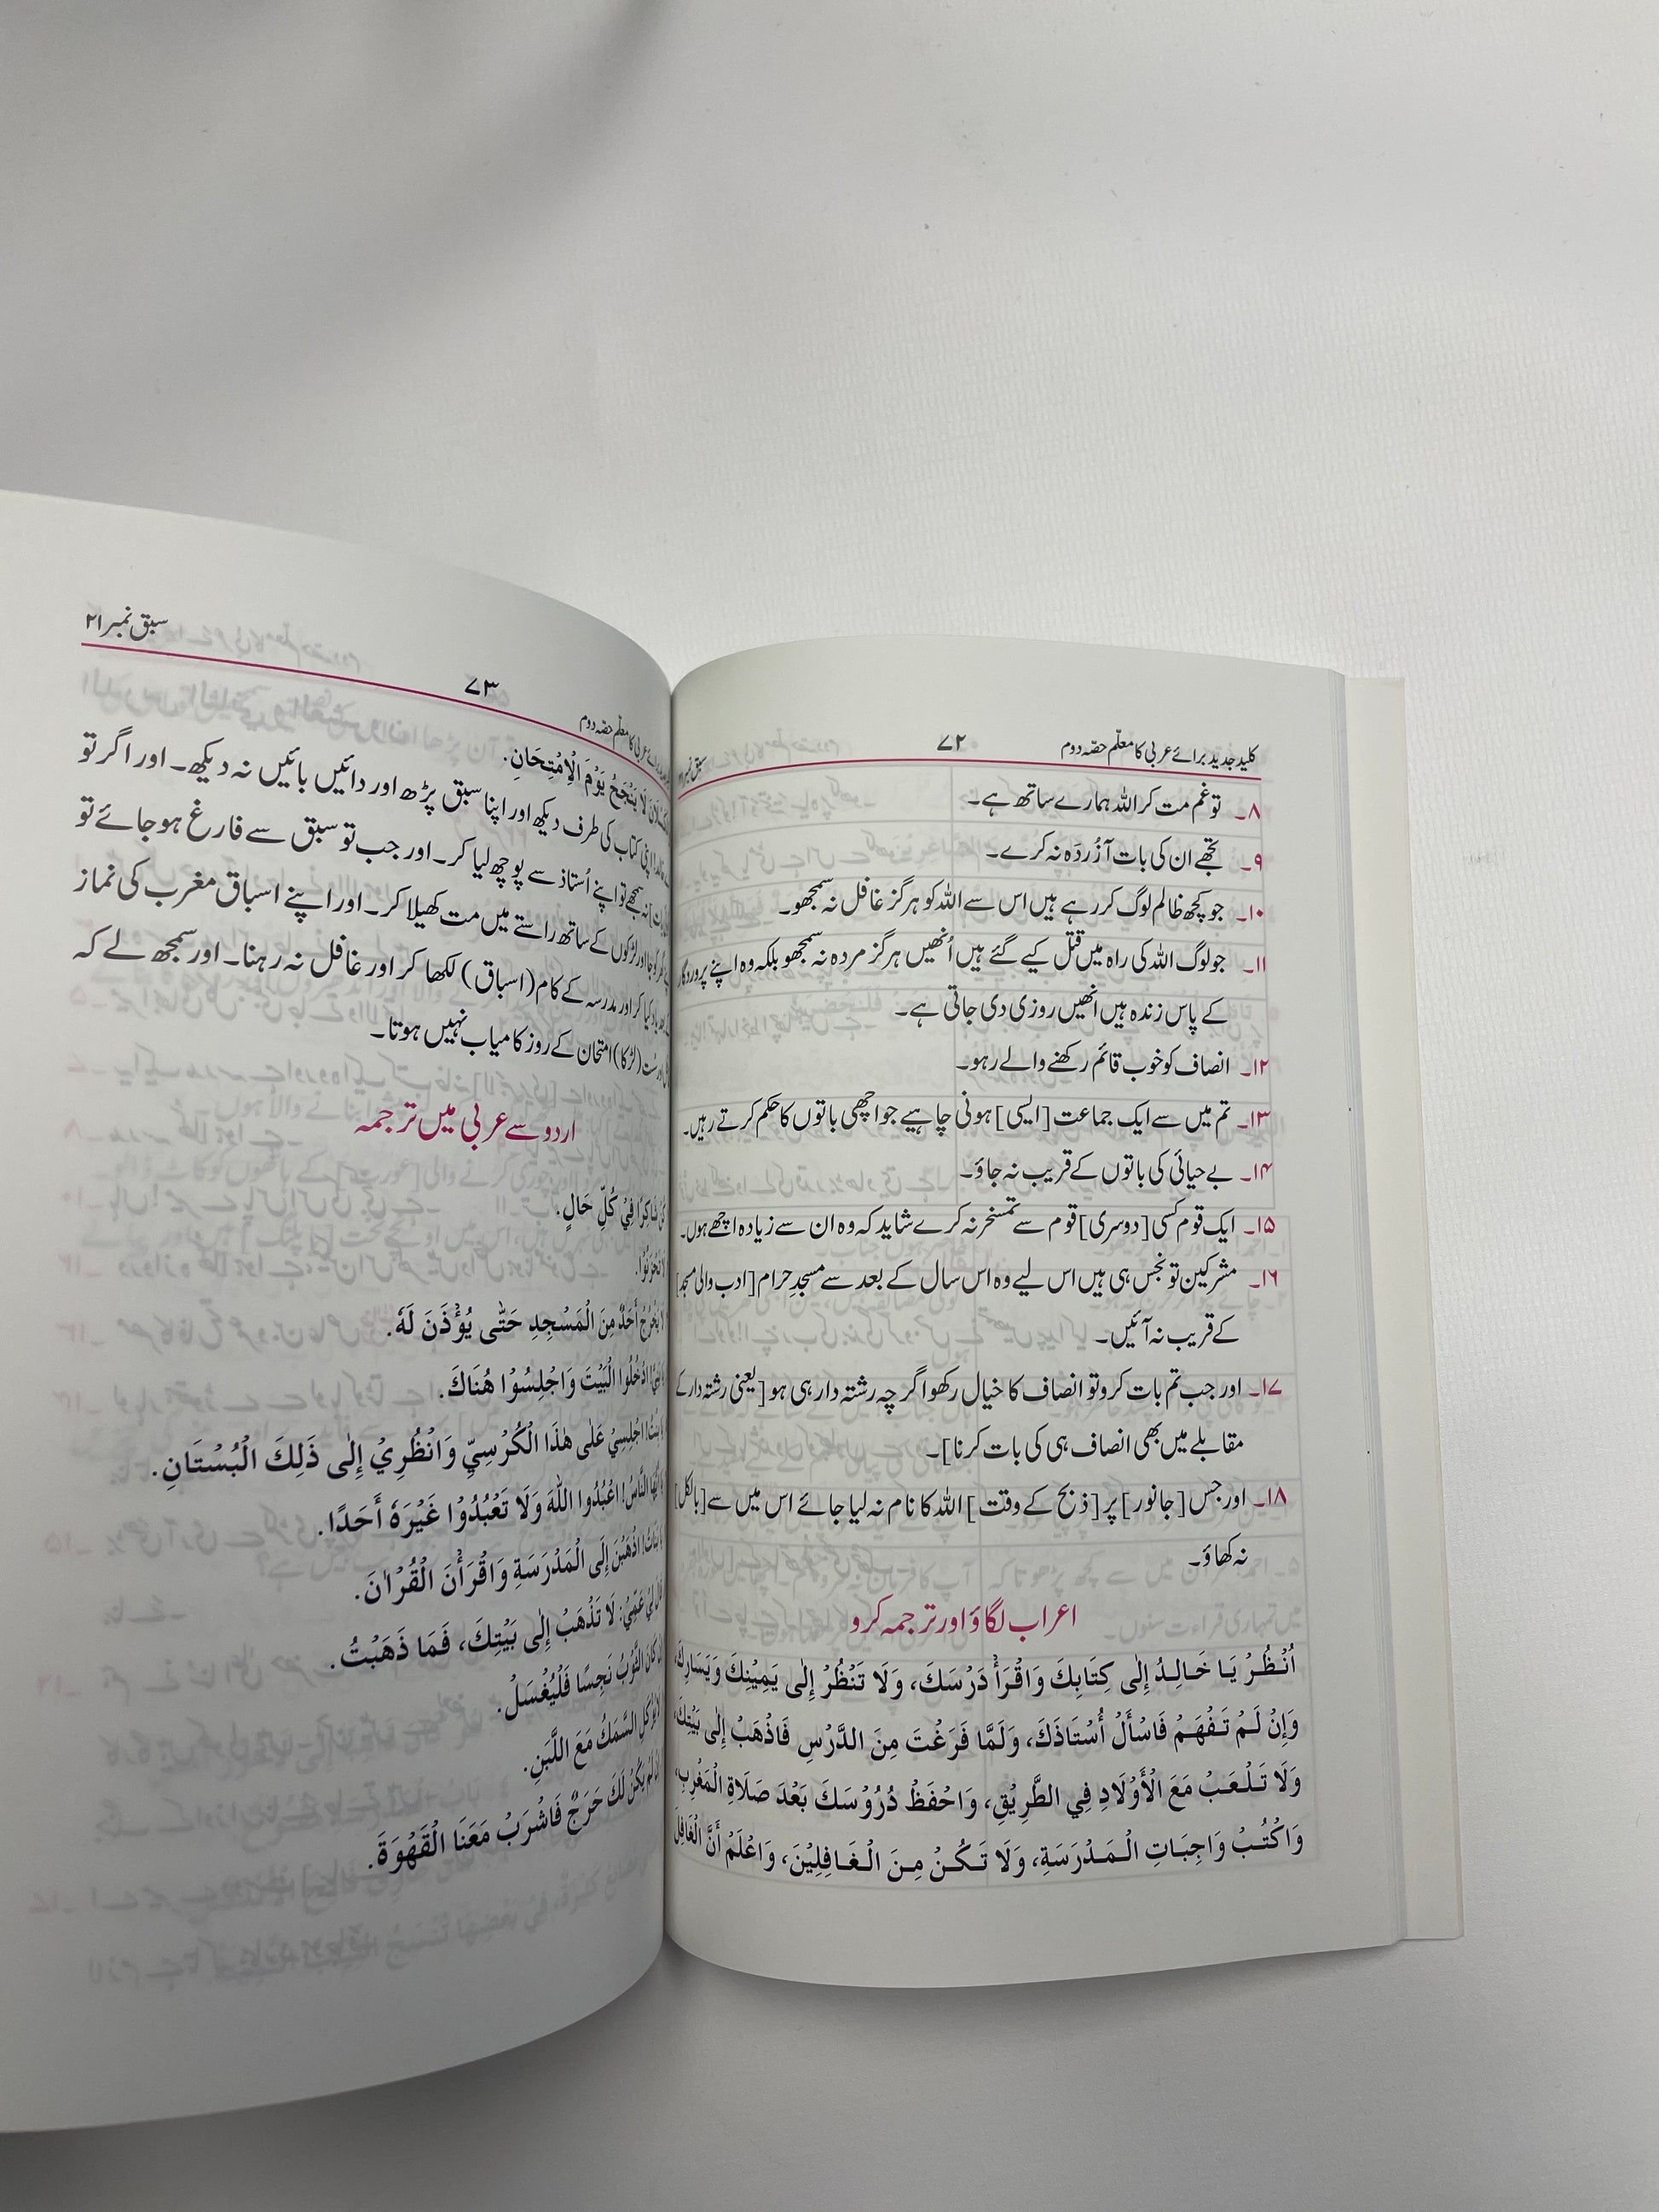 کلید جدید برائے عربی کا معلّم حصّہ دوم
۷۲
۸۔ تو غم مت کر اللہ ہمارے ساتھ ہے۔
۹۔ تجھے ان کی بات آزُردَہ نہ کرے۔
۱۰۔ جو کچھ ظالم لوگ کر رہے ہیں اس سے اللہ کو ہرگز غافل نہ سمجھو۔
۱۱۔ جو لوگ اللہ کی راہ میں قتل کیے گئے ہیں اُنھیں ہرگز مردہ نہ سمجھو بلکہ وہ اپنے پروردگار
کے پاس زندہ ہیں انھیں روزی دی جاتی ہے۔
۱۲۔ انصاف کو خوب قائم رکھنے والے رہو۔
۱۳۔ تم میں سے ایک جماعت [ایسی] ہونی چاہیے جو اچھی باتوں کا حکم کرتے رہیں۔
۱۴۔ بے حیائی کی باتوں کے قریب نہ جاؤ۔
۱۵۔ ایک قوم کسی [دوسری] قوم سے تمسخر نہ کرے شاید کہ وہ ان سے زیادہ اچھے ہوں۔
۱۶۔ مشرکین تو نجس ہی ہیں اس لیے وہ اس سال کے بعد سے مسجدِ حرام [ادب والی مسجد]
کے قریب نہ آئیں۔
۱۷۔ اور جب تم بات کرو تو انصاف کا خیال رکھو اگرچہ رشتہ دار ہی ہو [یعنی رشتہ دار کے
مقابلے میں بھی انصاف ہی کی بات کرنا]۔
۱۸۔ اور جس [جانور] پر [ذبح کے وقت] اللہ کا نام نہ لیا جائے اس میں سے [بالکل]
نہ کھاؤ۔
اعراب لگاؤ اور ترجمہ کرو
اُنْظُرْ يَا خَالِدُ إِلٰى كِتَابِكَ وَاقْرَأْ دَرْسَكَ، وَلَا تَنْظُرْ إِلٰى يَمِيْنِكَ وَيَسَارِكَ،
وَإِنْ لَمْ تَفْهَمْ فَاسْأَلْ أُسْتَاذَكَ، وَلَمَّا فَرَغْتَ مِنَ الدَّرْسِ فَاذْهَبْ إِلٰى بَيْتِكَ،
وَلَا تَلْعَبْ مَعَ الْأَوْلَادِ فِي الطَّرِيْقِ، وَاحْفَظْ دُرُوْسَكَ بَعْدَ صَلَاةِ الْمَغْرِبِ،
وَاكْتُبْ وَاجِبَاتِ الْمَدْرَسَةِ، وَلَا تَكُنْ مِنَ الْغَافِلِيْنَ، وَاعْلَمْ أَنَّ الْغَافِلَ
عربی کا معلّم حصّہ دوم
۷۳
سبق نمبر ۲۱
لَا يَنْجَحُ يَوْمَ الْاِمْتِحَانِ.
اپنی کتاب کی طرف دیکھ اور اپنا سبق پڑھ اور دائیں بائیں نہ دیکھ۔ اور اگر تو
نہ سمجھے تو اپنے اُستاذ سے پوچھ لیا کر۔ اور جب تو سبق سے فارغ ہو جائے تو
اور لڑکوں کے ساتھ راستے میں مت کھیلا کر۔ اور اپنے اسباق مغرب کی نماز
یاد کیا کر اور مدرسہ کے کام (اسباق) لکھا کر اور غافل نہ رہنا۔ اور سمجھ لے کہ
سُست (لڑکا) امتحان کے روز کامیاب نہیں ہوتا۔
اردو سے عربی میں ترجمہ
كُنْ شَاكِرًا فِيْ كُلِّ حَالٍ.
لَا تَحْزَنُوْا.
لَا يَخْرُجْ أَحَدٌ مِنَ الْمَسْجِدِ حَتّٰى يُؤْذَنَ لَهٗ.
ادْخُلُوا الْبَيْتَ وَاجْلِسُوْا هُنَاكَ.
اجْلِسِيْ عَلٰى هٰذَا الْكُرْسِيِّ وَانْظُرِيْ إِلٰى ذَلِكَ الْبُسْتَانِ.
النَّاسُ! اعْبُدُوا اللّٰهَ وَلَا تَعْبُدُوْا غَيْرَهٗ أَحَدًا.
اذْهَبْنَ إِلَى الْمَدْرَسَةِ وَاقْرَأْنَ الْقُرْاٰنَ.
لِيْ عَمِّيْ: لَا تَذْهَبْ إِلٰى بَيْتِكَ، فَمَا ذَهَبْتُ.
كَانَ الثَّوْبُ نَجِسًا فَلْيُغْسَلْ.
السَّمَكُ مَعَ اللَّبَنِ.
يَكُنْ لَكَ حَرَجٌ فَاشْرَبْ مَعَنَا الْقَهْوَةَ.